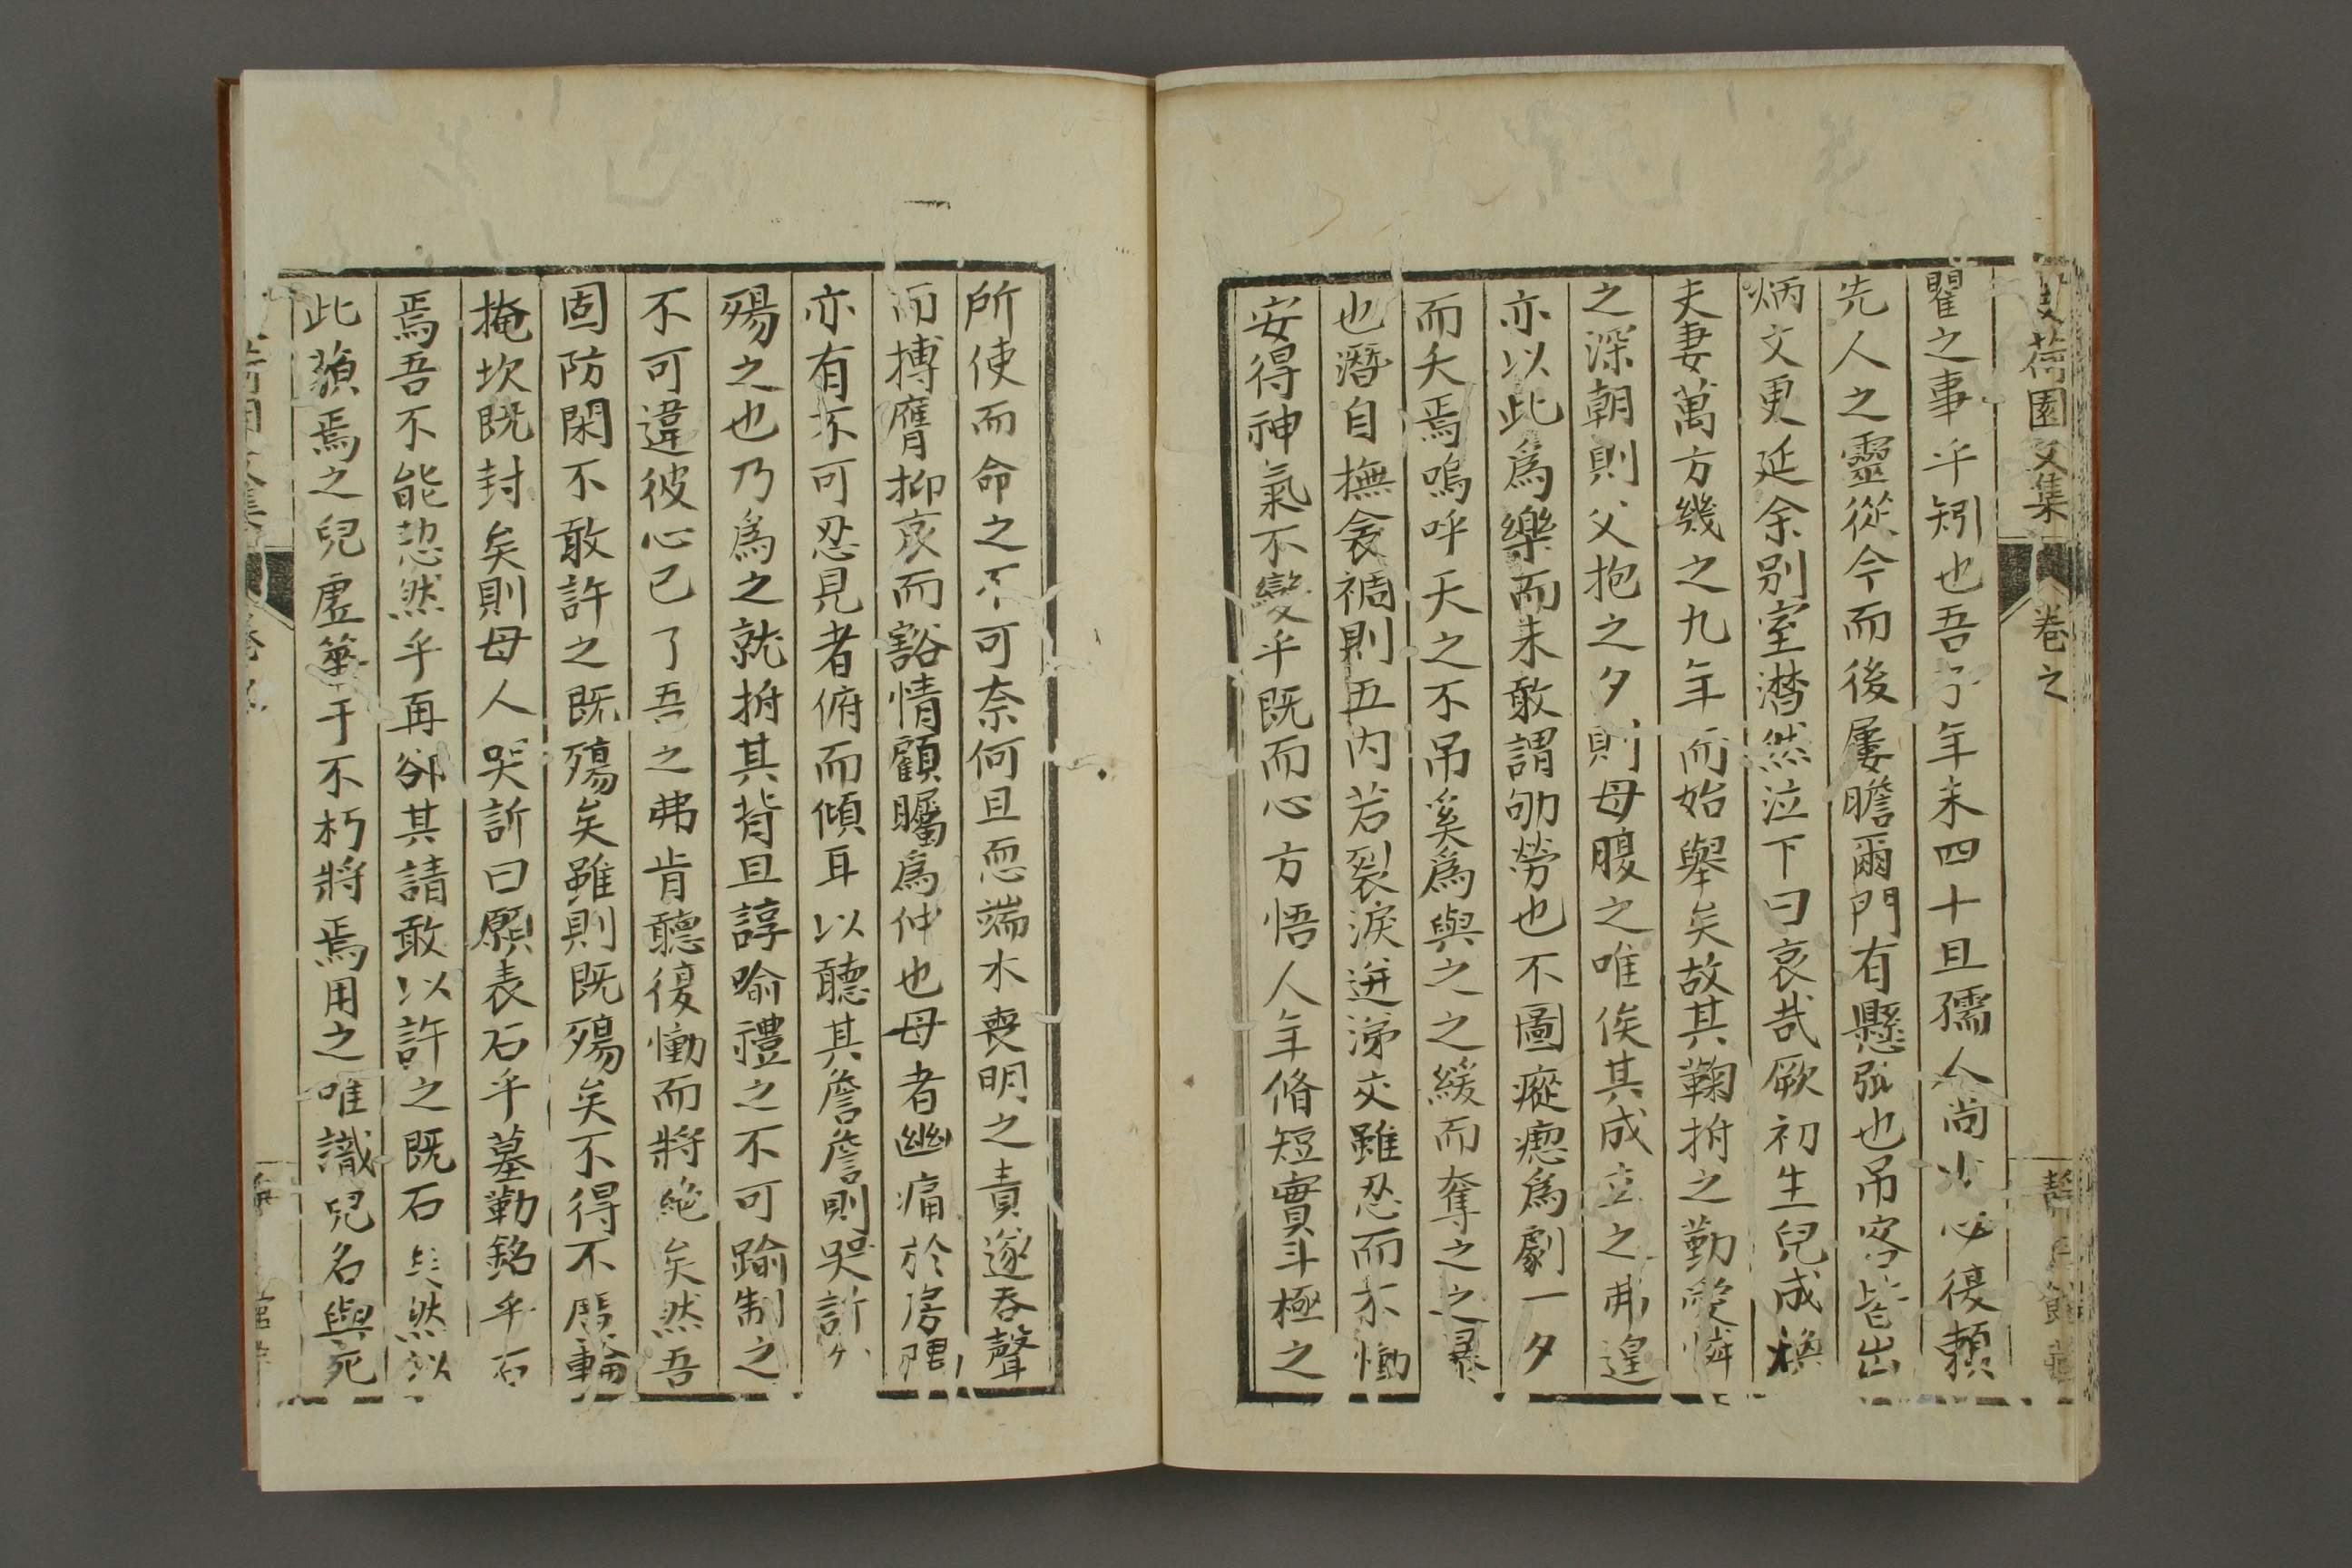 荷園文集 卷之
瞿之事乎矧也吾子年未四十且孺人尚少必復賴
先人之靈從今而後屢瞻爾門有懸弧也吊客皆出
炳文更延余別室潸然泣下曰哀哉厥初生兒成
夫妻萬方幾之九年而始舉矣故其鞠拊之勤愛憐
之深朝則父抱之夕則母腹之唯俟其成立之弗遑
亦以此爲樂而未敢謂劬勞也不圖瘲瘛爲劇一夕
而夭焉嗚呼天之不吊奚爲與之之緩而奪之之暴
也潛自撫衾裯則五内若裂淚迸涕交雖忍而不慟
安得神氣不變乎既而心方悟人年脩短實斗極之
所使而命之不可奈何且恧端木喪明之責遂吞聲
而搏膺抑哀而豁情顧矚爲仲也母者幽痛於房隈
亦有不可忍見者俯而傾耳以聽其詹詹則哭訴
殤之也乃爲之就拊其背且諄喻禮之不可踰制之
不可違彼心已了吾之弗肯聽復慟而將絶矣然吾
固防閑不敢許之既殤矣雖則既殤矣不得不廣輪
掩坎既封矣則母人哭訴曰願表石乎墓勒銘乎石
焉吾不能恝然乎再郤其請敢以許之既石矣然以
此藐焉之兒虛篳于不朽將焉用之唯識兒名與死